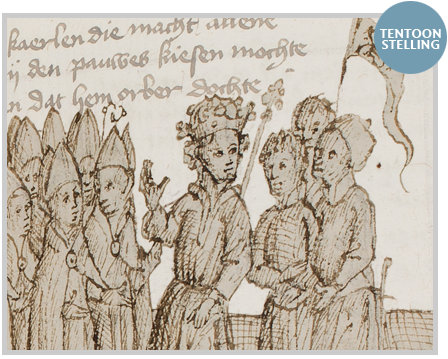 kaerlen die macht allene
ij den pauwes kiesen mochte
n dat hem orber dochte
TENTOON
STELLING